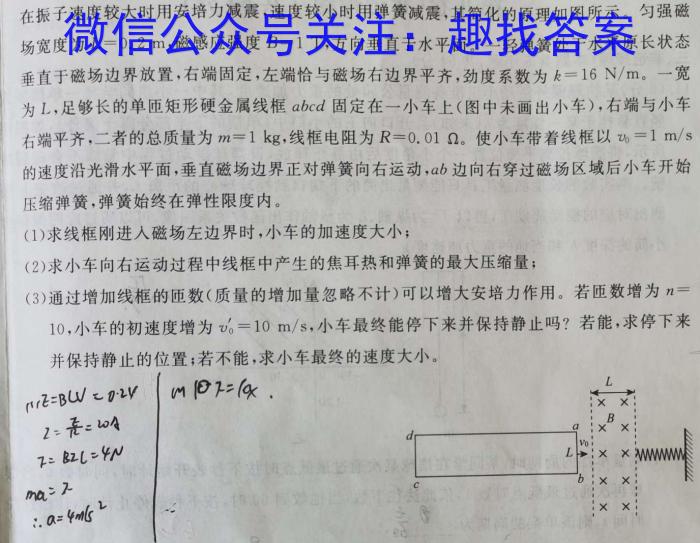 在振子速度较大时用安培力减震,速度较小时用弹簧减震,其简化的原理如图所示。匀强磁
微信公众号关注:趣找答案
垂直于磁场边界放置,右端固定,左端恰与磁场右边界平齐,劲度系数为k=16 N/m。一宽
为L,足够长的单匝矩形硬金属线框abcd固定在一小车上(图中未画出小车),右端与小车
右端平齐,二者的总质量为m=1 kg,线框电阻为R=0.01 Ω。使小车带着线框以v₀=1 m/s
的速度沿光滑水平面,垂直磁场边界正对弹簧向右运动,ab边向右穿过磁场区域后小车开始
压缩弹簧,弹簧始终在弹性限度内。
(1)求线框刚进入磁场左边界时,小车的加速度大小;
(2)求小车向右运动过程中线框中产生的焦耳热和弹簧的最大压缩量;
(3)通过增加线框的匝数(质量的增加量忽略不计)可以增大安培力作用。若匝数增为n=
10,小车的初速度增为v₀′=10 m/s,小车最终能停下来并保持静止吗?若能,求停下来
并保持静止的位置;若不能,求小车最终的速度大小。
L
B
d
a
L
v₀
c
b
E=BLV=0.2V
=20A
=4N
ma=
∴a=4m/s²